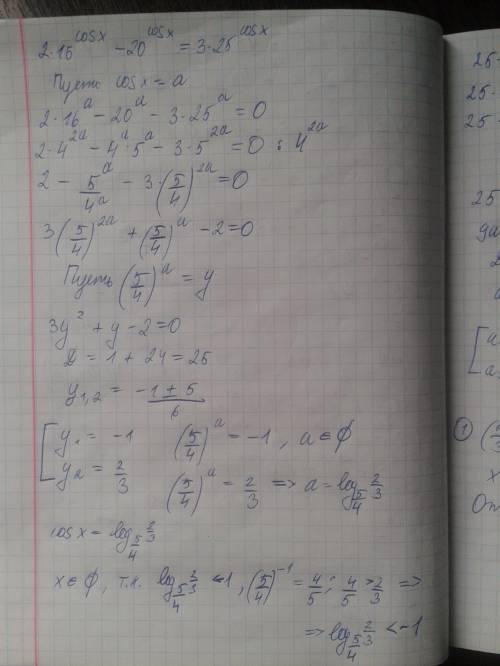 2·16^cosx − 20^cosx = 3·25^cosx
Пусть cosx = a
2·16^a − 20^a − 3·25^a = 0
2·4^2a − 4^a·5^a − 3·5^2a = 0 : 4^2a
2 − 5^a/4^a − 3·(5/4)^2a = 0
3(5/4)^2a + (5/4)^a − 2 = 0
Пусть (5/4)^a = y
3y² + y − 2 = 0
D = 1 + 24 = 25
y₁,₂ = −1 ± 5 / 6
[ y₁ = −1 (5/4)^a = −1, a ∈ ∅
y₂ = 2/3 (5/4)^a = 2/3 => a = log_5/4 2/3
cosx = log_5/4 2/3
x ∈ ∅, т.к. log_5/4 2/3 < −1, (5/4)^−1 = 4/5; 4/5 > 2/3 =>
=> log_5/4 2/3 < −1
25
25·
25·
25
[ a
1 (5/3
x
От